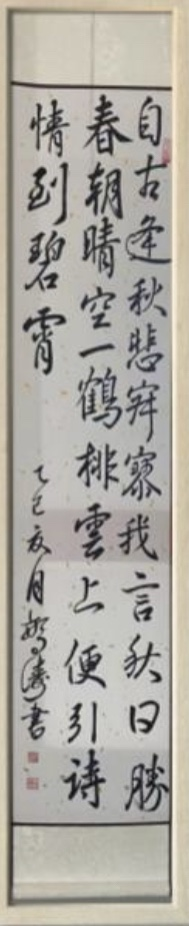 自古逢秋悲寂寥我言秋日勝
春朝晴空一鶴排雲上便引詩
情到碧霄
乙巳亥月濤書